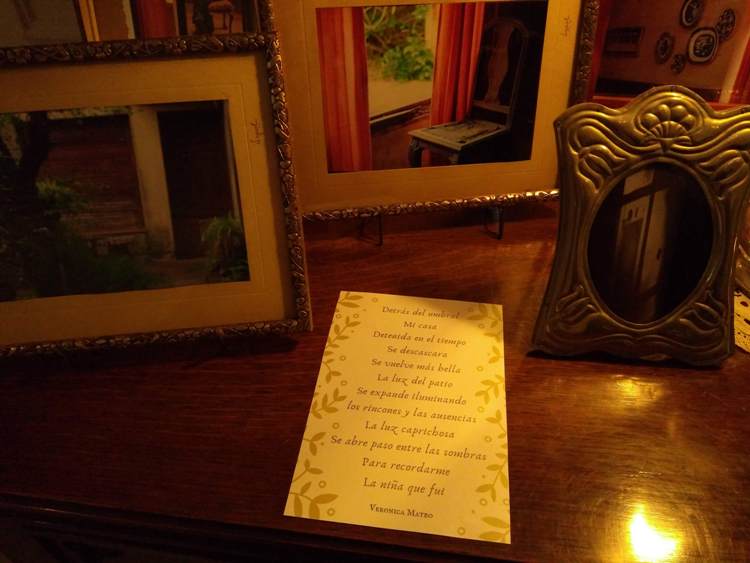 Detrás del umbral
Mi casa
Detenida en el tiempo
Se descascara
Se vuelve más bella
La luz del patio
Se expande iluminando
los rincones y las ausencias
La luz caprichosa
Se abre paso entre las sombras
Para recordarme
La niña que fui
Veronica Mateo